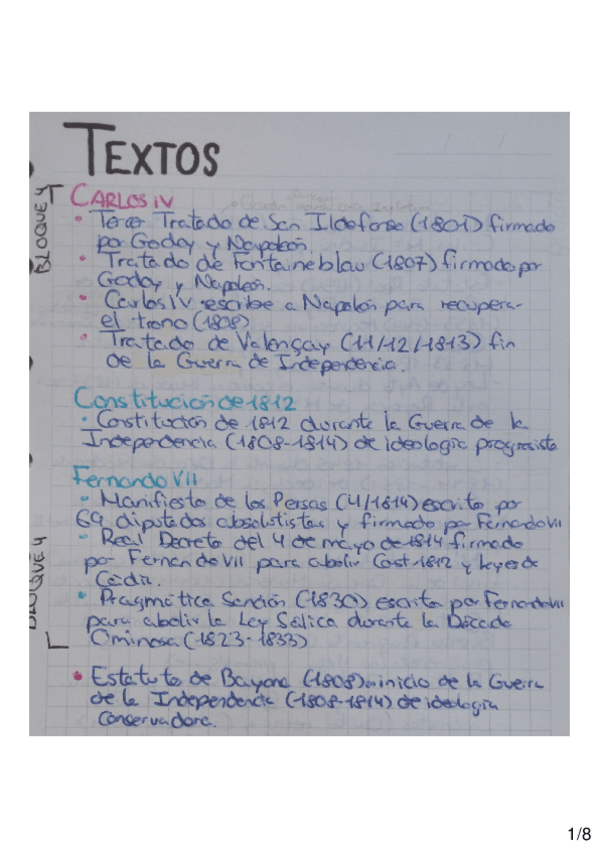 TEXTOS
BLOQUE 4
CARLOS IV
• Tercer Tratado de San Ildefonso (1801) firmado
por Godoy y Napoleón.
• Tratado de Fontaineblau (1807) firmado por
Godoy y Napoleón.
• Carlos IV escribe a Napoleón para recupera-
el trono (1808)
• Tratado de Valençay (11/12/1813) fin
de la Guerra de Independencia.
Constitución de 1812
• Constitución de 1812 durante la Guerra de la
Independencia (1808-1814) de ideología progresista
Fernando VII
• Manifiesto de los Persas (4/1814) escrito por
69 diputados absolutistas y firmado por Fernando VII
• Real Decreto del 4 de mayo de 1814 firmado
por Fernando VII para abolir Cost. 1812 y leyes de
Cádiz.
BLOQUE 4
• Pragmática Sanción (1830) escrita por Fernando VII
para abolir la Ley Sálica durante la Década
Ominosa (1823-1833)
• Estatuto de Bayona (1808) inicio de la Guerra
de la Independencia (1808-1814) de ideología
conservadora.
1/8